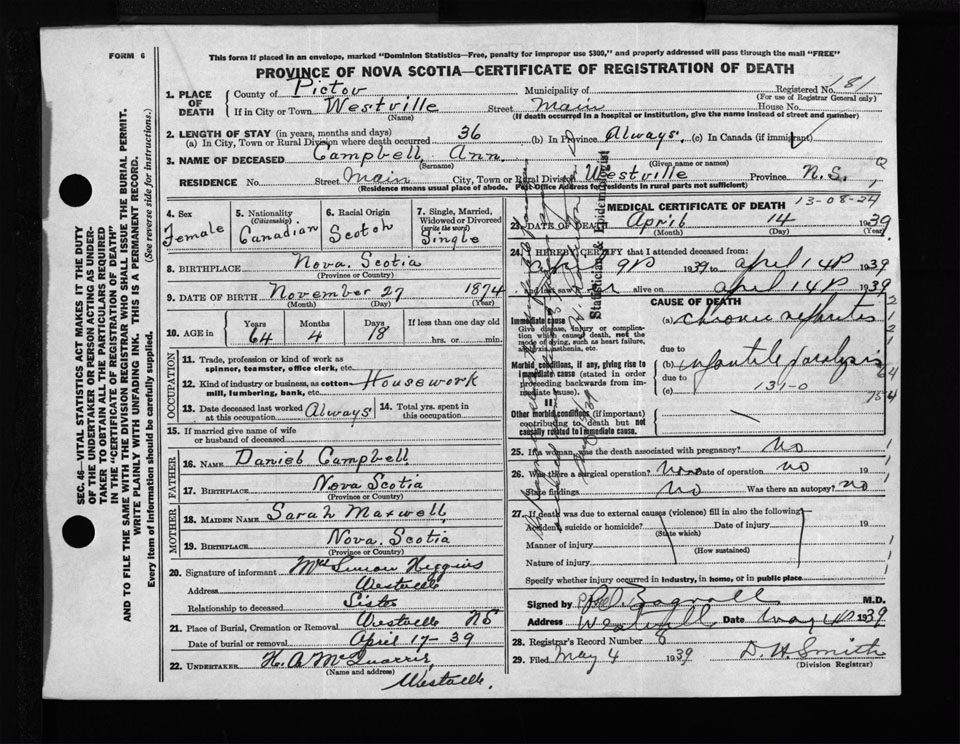 FORM 6
This form if placed in an envelope, marked "Dominion Statistics—Free, penalty for improper use $300," and properly addressed will pass through the mail "FREE"
PROVINCE OF NOVA SCOTIA—CERTIFICATE OF REGISTRATION OF DEATH
1. PLACE OF DEATH County of Pictou Municipality of Registered No. 181
(For use of Registrar General only)
If in City or Town Westville Street Main House No.
(Name) (If death occurred in a hospital or institution, give the name instead of street and number)
2. LENGTH OF STAY (in years, months and days)
(a) In City, Town or Rural Division where death occurred 36 (b) In Province Always. (c) In Canada (if immigrant)
3. NAME OF DECEASED Campbell, Ann.
(Surname) (Given name or names)
RESIDENCE No. Street Main City, Town or Rural Division Westville Province N.S.
(Residence means usual place of abode. Post Office Address for residents in rural parts not sufficient)
4. Sex Female
5. Nationality (Citizenship) Canadian
6. Racial Origin Scotch
7. Single, Married, Widowed or Divorced (write the word) Single
8. BIRTHPLACE Nova. Scotia
(Province or Country)
9. DATE OF BIRTH November 27 1874
(Month) (Day) (Year)
10. AGE in Years 64 Months 4 Days 18 If less than one day hrs. or min.
OCCUPATION
11. Trade, profession or kind of work as spinner, teamster, office clerk, etc.
12. Kind of industry or business, as cotton mill, lumbering, bank, etc. Housework
13. Date deceased last worked at this occupation Always
14. Total yrs. spent in this occupation
15. If married give name of wife or husband of deceased
FATHER
16. NAME Daniel Campbell
17. BIRTHPLACE Nova Scotia
(Province or Country)
MOTHER
18. MAIDEN NAME Sarah Maxwell
19. BIRTHPLACE Nova. Scotia
(Province or Country)
20. Signature of informant Mrs Simon Higgins
Address Westville
Relationship to deceased Sister
21. Place of Burial, Cremation or Removal Westville NS
Date of burial or removal April 17-39
22. UNDERTAKER H. A McQuarrie
(Name and address)
Westville.
MEDICAL CERTIFICATE OF DEATH
13-08-24
23. DATE OF DEATH April 14 1939
(Month) (Day) (Year)
24. I HEREBY CERTIFY that I attended deceased from:
April 9 1939 to April 14 1939
and last saw her alive on April 14 1939
CAUSE OF DEATH
Immediate cause
Give disease, injury or complication which caused death, not the mode of dying, such as heart failure, asphyxia, asthenia, etc.
(a) Chronic nephritis
due to
Morbid conditions, if any, giving rise to immediate cause (stated in order proceeding backwards from immediate cause).
(b) infantile paralysis
due to
(c) 131-0
II
Other morbid conditions (if important) contributing to death but not causally related to immediate cause.
25. If a woman, was the death associated with pregnancy? No
26. Was there a surgical operation? no Date of operation no 19
State findings No Was there an autopsy? No
27. If death was due to external causes (violence) fill in also the following:
Accident, suicide or homicide? Date of injury 19
(State which)
Manner of injury
(How sustained)
Nature of injury
Specify whether injury occurred in industry, in home, or in public place
Signed by Bagnall M.D.
Address Westville Date May 1939
28. Registrar's Record Number 8
29. Filed May 4 1939 D. H. Smith
(Division Registrar)
Statistician & Epidemiologist
SEC. 46—VITAL STATISTICS ACT MAKES IT THE DUTY
OF THE UNDERTAKER OR PERSON ACTING AS UNDERTAKER
TO OBTAIN ALL THE PARTICULARS REQUIRED
IN THE "CERTIFICATE OF REGISTRATION OF DEATH"
AND TO FILE THE SAME WITH THE DIVISION REGISTRAR WHO SHALL ISSUE THE BURIAL PERMIT.
WRITE PLAINLY WITH UNFADING INK. THIS IS A PERMANENT RECORD.
Every item of information should be carefully supplied. (See reverse side for instructions.)